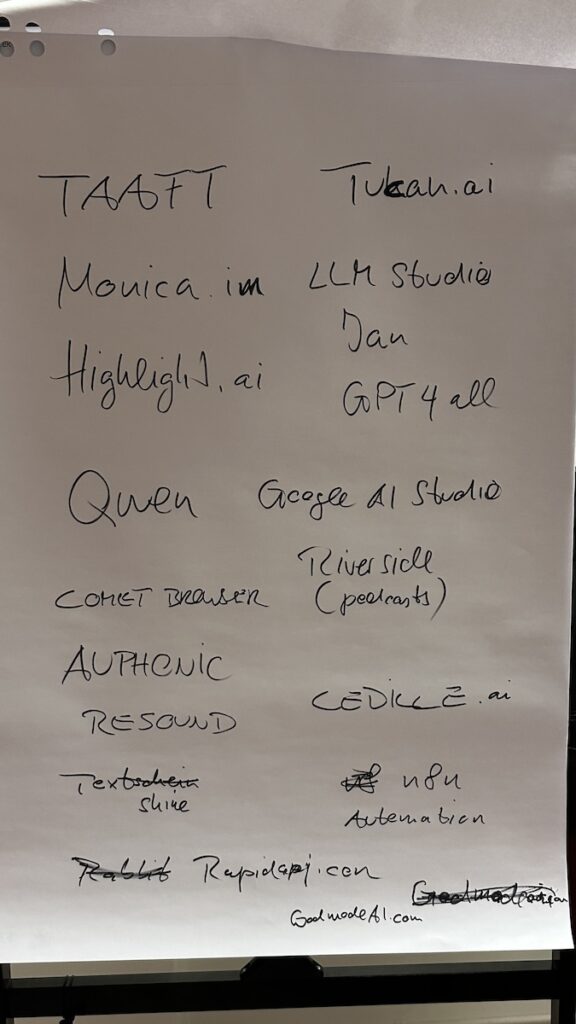 TAAFT
Tukan.ai
Monica.im
LLM Studio
Jan
Highlight.ai
GPT4all
Qwen
Google AI Studio
Riverside
(podcasts)
COMET BROWSER
AUPHONIC
CEDILLE.ai
RESOUND
Textschein
shine
n8n
Automation
Rabbit Rapidapi.com
GodmodeAI.com